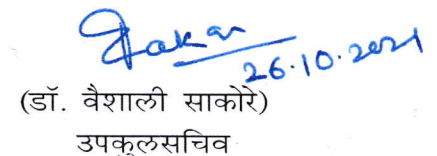 26.10.2021
(डॉ. वैशाली साकोरे)
उपकुलसचिव